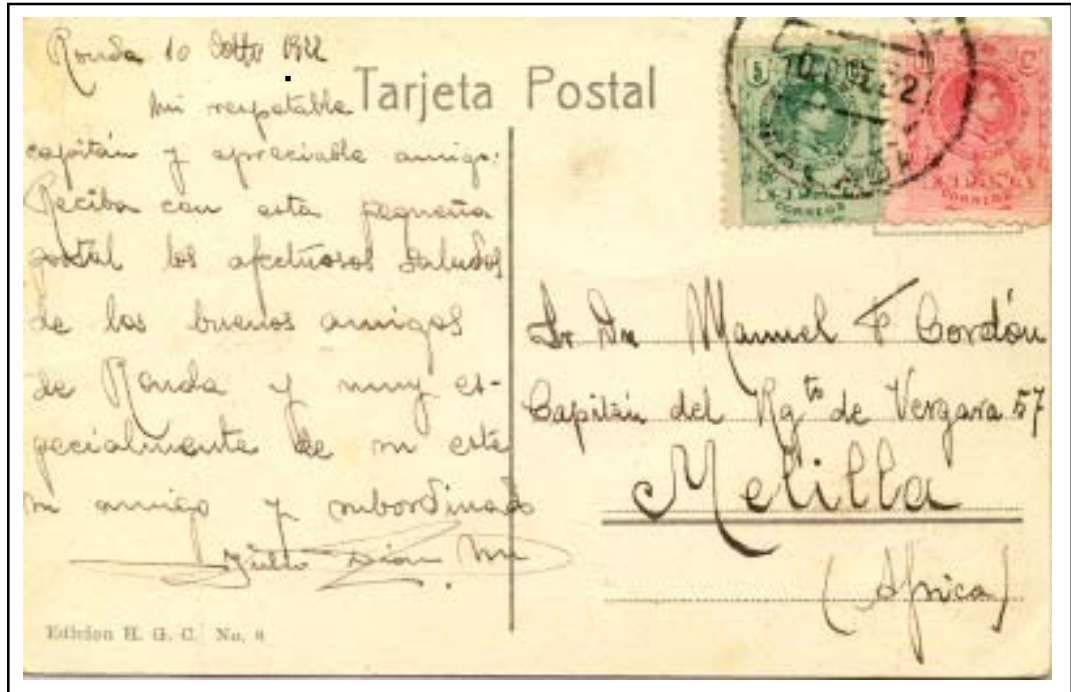 Ronda 10 1922
Tarjeta Postal
Mi respetable
capitán y apreciable amigo:
Reciba con esta pequeña
postal los afectuosos saludos
de los buenos amigos
de Ronda y muy es-
pecialmente de su
amigo y subordinado
Julio
Edicion H. G. C. No.
5
10 OCT 22
CORREOS
CORREOS
Sr Dn Manuel F Cordón
Capitán del Rgto de Vergara 57
Melilla
(Africa)